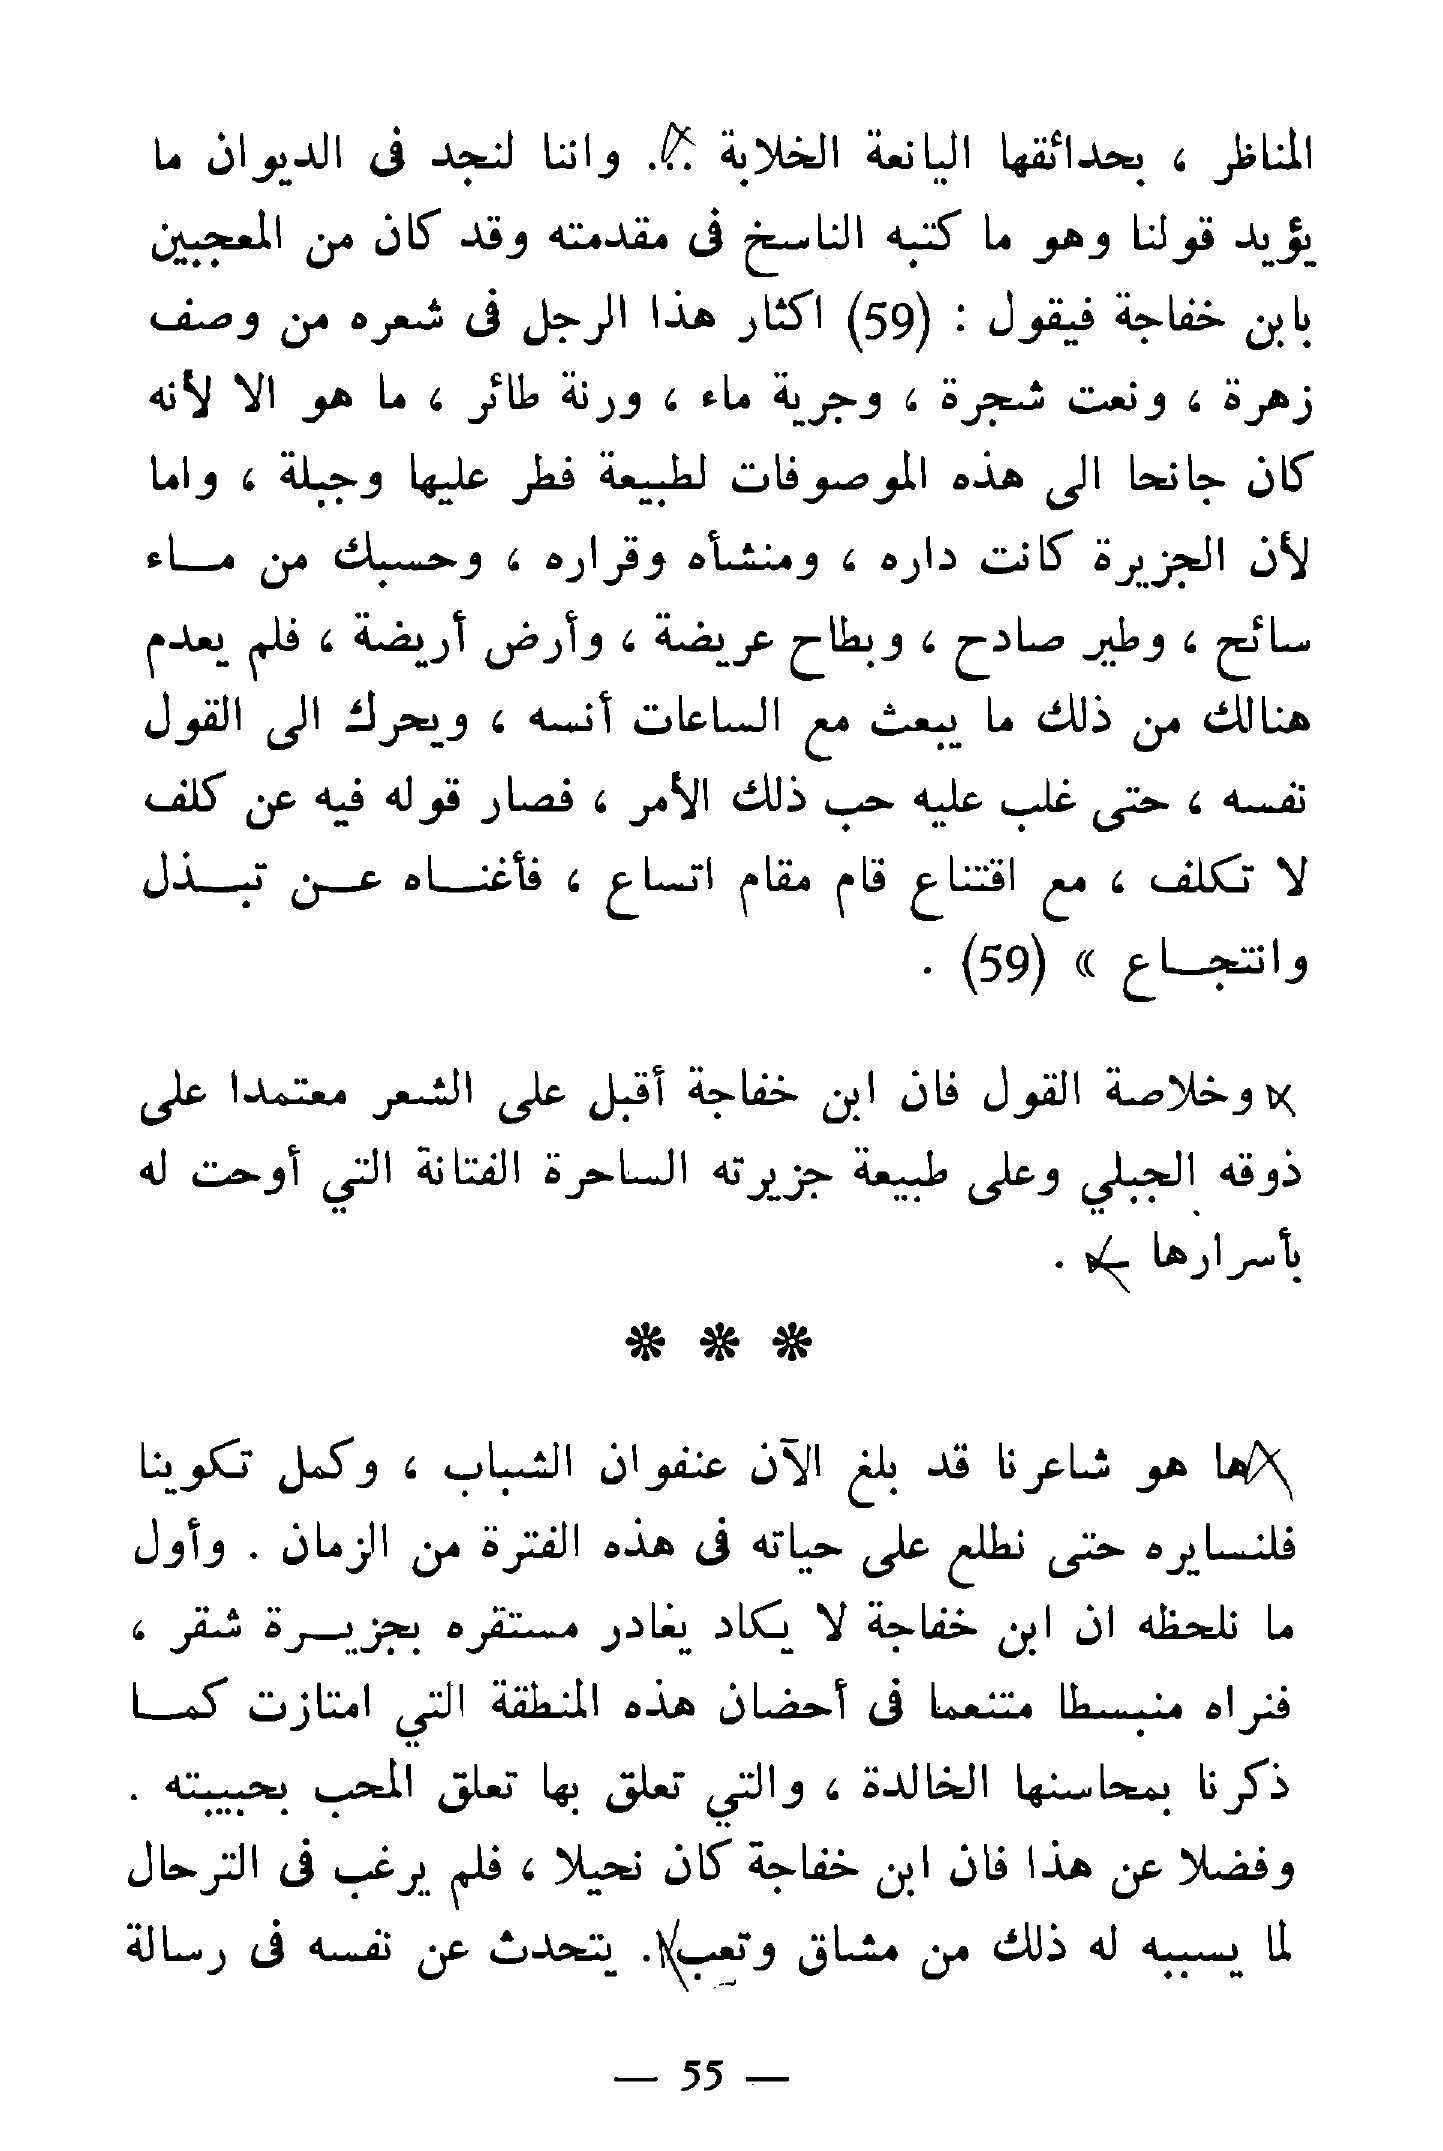 المناظر ، بحدائقها اليانعة الخلابة ... واننا لنجد فى الديوان ما
يؤيد قولنا وهو ما كتبه الناسخ فى مقدمته وقد كان من المعجبين
بابن خفاجة فيقول : (59) اكثار هذا الرجل فى شعره من وصف
زهرة ، ونعت شجرة ، وجرية ماء ، ورنة طائر ، ما هو الا لأنه
كان جانحا الى هذه الموصوفات لطبيعة فطر عليها وجبلة ، واما
لأن الجزيرة كانت داره ، ومنشأه وقراره ، وحسبك من مــاء
سائح ، وطير صادح ، وبطاح عريضة ، وأرض أريضة ، فلم يعدم
هنالك من ذلك ما يبعث مع الساعات أنسه ، ويحرك الى القول
نفسه ، حتى غلب عليه حب ذلك الأمر ، فصار قوله فيه عن كلف
لا تكلف ، مع اقتناع قام مقام اتساع ، فأغنــاه عــن تبــذل
وانتجــاع » (59) .
وخلاصة القول فان ابن خفاجة أقبل على الشعر معتمدا على
ذوقه الجبلي وعلى طبيعة جزيرته الساحرة الفتانة التي أوحت له
بأسرارها .
* * *
ها هو شاعرنا قد بلغ الآن عنفوان الشباب ، وكمل تكوينا
فلنسايره حتى نطلع على حياته فى هذه الفترة من الزمان . وأول
ما نلحظه ان ابن خفاجة لا يكاد يغادر مستقره بجزيــرة شقر ،
فنراه منبسطا متنعما فى أحضان هذه المنطقة التي امتازت كمــا
ذكرنا بمحاسنها الخالدة ، والتي تعلق بها تعلق المحب بحبيبته .
وفضلا عن هذا فان ابن خفاجة كان نحيلا ، فلم يرغب فى الترحال
لما يسببه له ذلك من مشاق وتعب . يتحدث عن نفسه فى رسالة
— 55 —